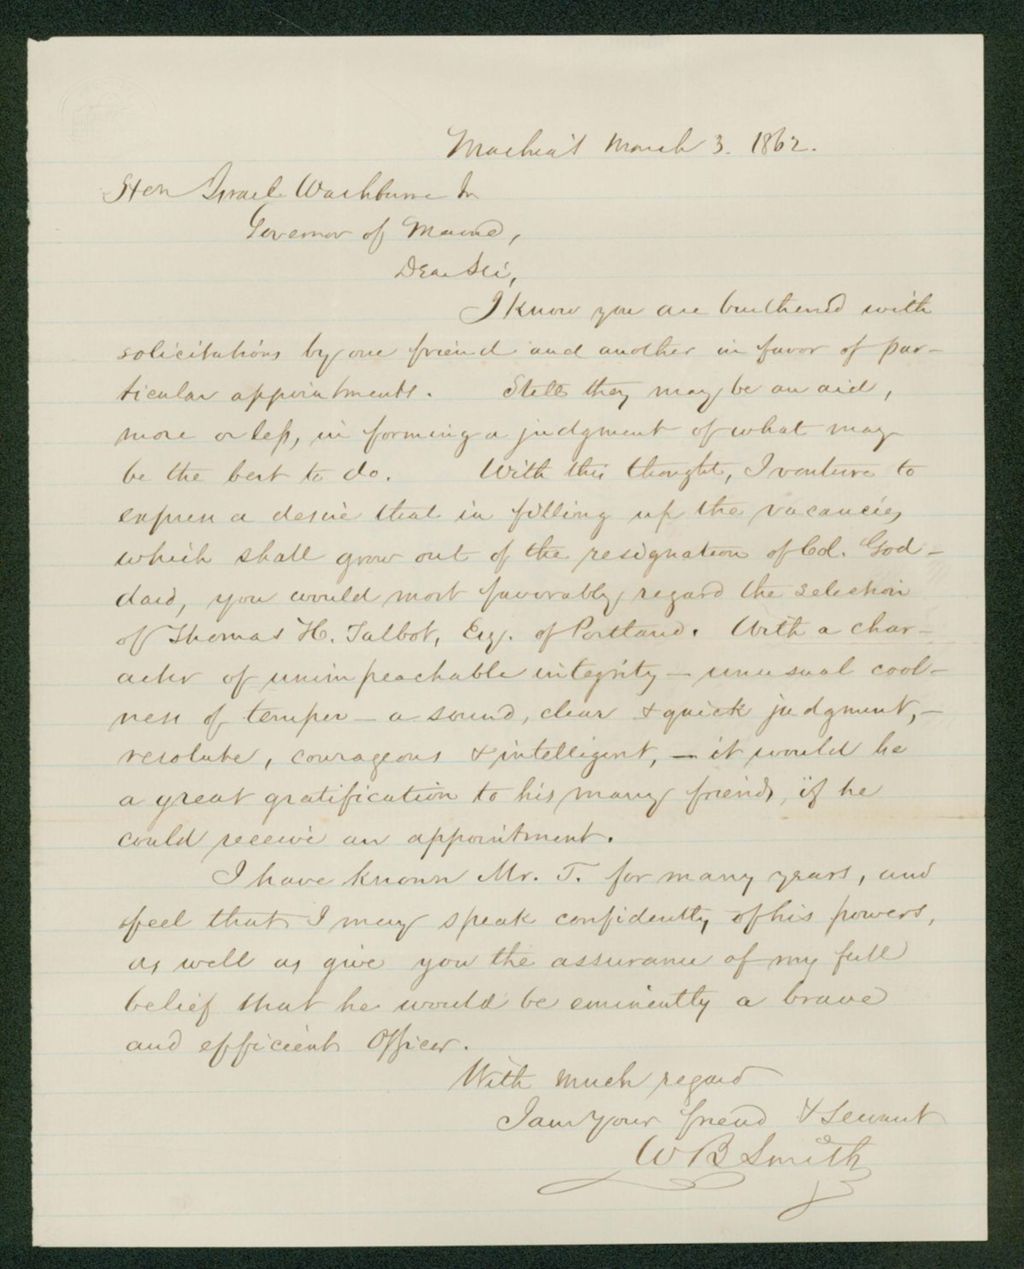 Machias March 3. 1862.
Hon Israel Washburne Jr
Governor of Maine,
Dear Sir,
I know you are burthened with
solicitations by one friend and another in favor of par-
ticular appointments. Still they may be an aid,
more or less, in forming a judgment of what may
be the best to do. With this thought, I venture to
express a desire that in filling up the vacancies
which shall grow out of the resignation of Col. God-
dard, you would most favorably regard the selection
of Thomas H. Talbot, Esq. of Portland. With a char-
acter of unimpeachable integrity – unusual cool-
ness of temper – a sound, clear & quick judgment, –
resolute, courageous & intelligent, – it would be
a great gratification to his many friends, if he
could receive an appointment.
I have known Mr. T. for many years, and
feel that I may speak confidently of his powers,
as well as give you the assurance of my full
belief that he would be eminently a brave
and efficient Officer.
With much regard
I am your friend & Servant
W B Smith